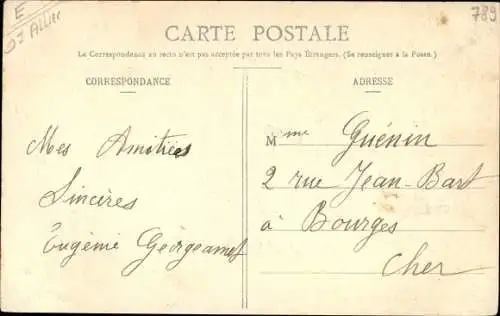 E
Allier
789
CARTE POSTALE
La Correspondance au recto n'est pas acceptée par tous les Pays Étrangers. (Se renseigner à la Poste.)
CORRESPONDANCE
Mes Amitiées
Sincères
Eugénie
ADRESSE
Mme Guénin
2 rue Jean-Bart
à Bourges
Cher